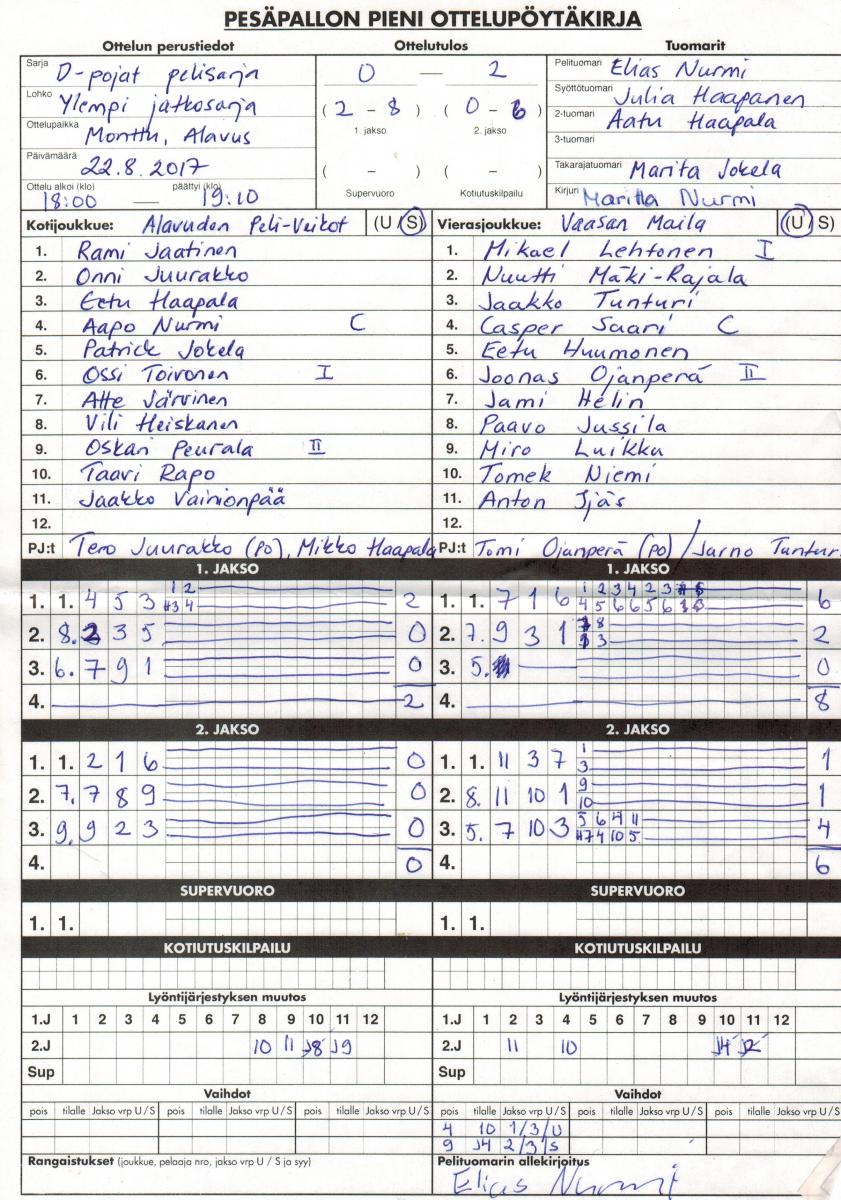 PESÄPALLON PIENI OTTELUPÖYTÄKIRJA
Ottelun perustiedot
Ottelutulos
Tuomarit
Sarja D-pojat pelisarja
Lohko Ylempi jatkosarja
Ottelupaikka Monttu, Alavus
Päivämäärä 22.8.2017
Ottelu alkoi (klo) päättyi (klo)
18:00 — 19:10
0 — 2
( 2 - 8 ) ( 0 - 6 )
1. jakso 2. jakso
( - ) ( - )
Supervuoro Kotiutuskilpailu
Pelituomari Elias Nurmi
Syöttötuomari Julia Haapanen
2-tuomari Aatu Haapala
3-tuomari
Takarajatuomari Marita Jokela
Kirjuri Maritta Nurmi
Kotijoukkue: Alavuden Peli-Veikot (U / S)
1. Rami Jaatinen
2. Onni Juurakko
3. Eetu Haapala
4. Aapo Nurmi C
5. Patrick Jokela
6. Ossi Toivonen I
7. Atte Järvinen
8. Vili Heiskanen
9. Oskari Peurala II
10. Taavi Rapo
11. Jaakko Vainionpää
12.
PJ:t Tero Juurakko (po), Mikko Haapala
Vierasjoukkue: Vaasan Maila (U / S)
1. Mikael Lehtonen I
2. Nuutti Mäki-Rajala
3. Jaakko Tunturi
4. Casper Saari C
5. Eetu Huumonen
6. Joonas Ojanperä II
7. Jami Helin
8. Paavo Jussila
9. Miro Luikku
10. Tomek Niemi
11. Anton Ijäs
12.
PJ:t Tomi Ojanperä (po) / Jarno Tuntur
1. JAKSO
1. 1. 4 5 3 1 2 2
3 4
2. 8. 2 3 5 0
3. 6. 7 9 1 0
4. 2
1. JAKSO
1. 1. 7 1 6 1 2 3 4 2 3 6
4 5 6 6 5 6
2. 7. 9 3 1 8 2
3
3. 5. 0
4. 8
2. JAKSO
1. 1. 2 1 6 0
2. 7. 7 8 9 0
3. 9. 9 2 3 0
4. 0
2. JAKSO
1. 1. 11 3 7 1 1
3
2. 8. 11 10 1 9 1
10
3. 5. 7 10 3 5 6 4 11 4
7 4 10 5
4. 6
SUPERVUORO
1. 1.
SUPERVUORO
1. 1.
KOTIUTUSKILPAILU
KOTIUTUSKILPAILU
Lyöntijärjestyksen muutos
1.J 1 2 3 4 5 6 7 8 9 10 11 12
2.J 10 11 J8 J9
Sup
Lyöntijärjestyksen muutos
1.J 1 2 3 4 5 6 7 8 9 10 11 12
2.J 11 10 J4 J2
Sup
Vaihdot
pois tilalle Jakso vrp U / S pois tilalle Jakso vrp U / S pois tilalle Jakso vrp U / S
Vaihdot
pois tilalle Jakso vrp U / S pois tilalle Jakso vrp U / S pois tilalle Jakso vrp U / S
4 10 1/3/U
9 J4 2/3/S
Rangaistukset (joukkue, pelaaja nro, jakso vrp U / S ja syy)
Pelituomarin allekirjoitus
Elias Nurmi